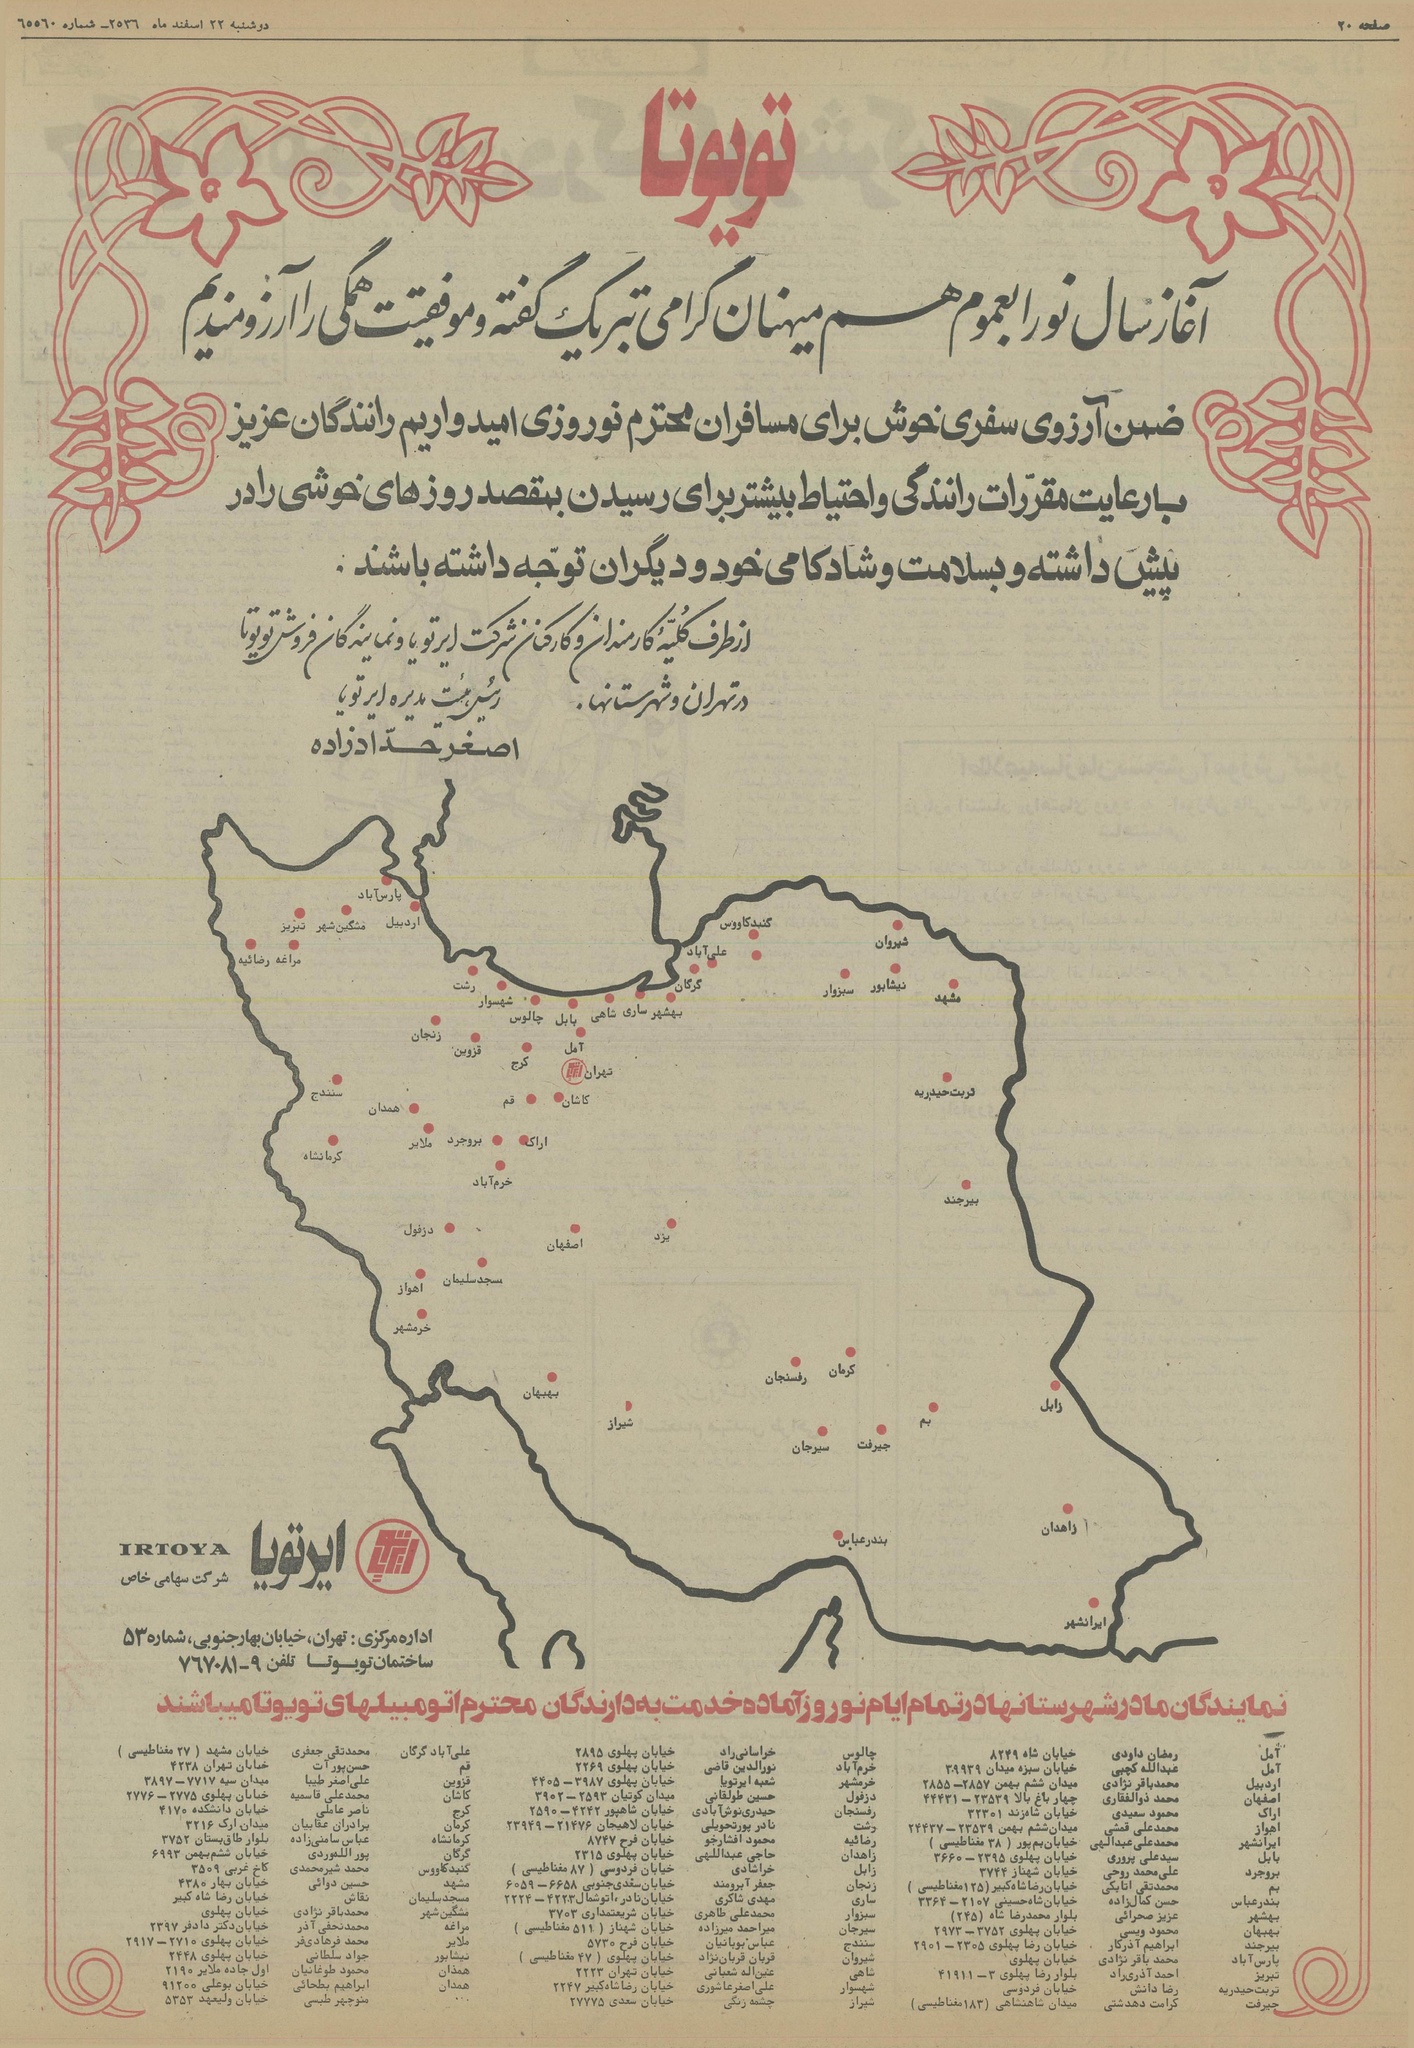 صفحه ۲۰
دوشنبه ۲۲ اسفند ماه ۲۵۳۶ـ شماره ۶۵۵۶۰
تویوتا
آغاز سال نو را بعموم هم میهنان گرامی تبریک گفته و موفقیت همگی را آرزومندیم
ضمن آرزوی سفری خوش برای مسافران محترم نوروزی امیدواریم رانندگان عزیز
با رعایت مقررات رانندگی و احتیاط بیشتر برای رسیدن بمقصد روزهای خوشی را در
پیش داشته و بسلامت و شادکامی خود و دیگران توجّه داشته باشند .
از طرف کلیّهٔ کارمندان و کارکنان شرکت ایرتویا و نمایندگان فروش تویوتا
در تهران و شهرستانها .
رئیس هیئت مدیره ایرتویا
اصغر حدّادزاده
پارس‌آباد
اردبیل
مشگین‌شهر
تبریز
مراغه
رضائیه
گنبدکاووس
علی‌آباد
گرگان
شیروان
مشهد
نیشابور
سبزوار
رشت
شهسوار
چالوس
بابل
شاهی
ساری
بهشهر
زنجان
قزوین
کرج
آمل
تهران
سنندج
همدان
قم
کاشان
تربت‌حیدریه
کرمانشاه
ملایر
بروجرد
اراک
خرم‌آباد
بیرجند
دزفول
اصفهان
یزد
اهواز
مسجدسلیمان
خرمشهر
بهبهان
رفسنجان
کرمان
زابل
شیراز
سیرجان
جیرفت
بم
زاهدان
بندرعباس
ایرانشهر
ایرتویا
IRTOYA
شرکت سهامی خاص
اداره مرکزی : تهران، خیابان بهارجنوبی، شماره ۵۳
ساختمان تویوتا تلفن ۹-۷۶۷۰۸۱
نمایندگان ما در شهرستانها در تمام ایام نوروز آماده خدمت به دارندگان محترم اتومبیلهای تویوتا میباشند
آمل رمضان داودی خیابان شاه ۸۲۴۹
آمل عبدالله کچبی خیابان سبزه میدان ۳۹۹۳۹
اردبیل محمدباقر نژادی میدان ششم بهمن ۲۸۵۷ – ۲۸۵۵
اصفهان محمد ذوالفقاری چهار باغ بالا ۲۳۵۳۹ – ۴۴۴۳۱
اراک محمود سعیدی خیابان شاه‌زند ۳۲۳۰۱
اهواز محمدعلی قمشی میدان‌ششم بهمن ۲۳۵۳۹ – ۲۴۴۳۷
ایرانشهر محمدعلی‌عبدالهی خیابان‌بم‌پور ( ۳۸ مغناطیسی )
بابل سیدعلی پروری خیابان پهلوی ۲۳۹۵ – ۳۶۶۰
بروجرد علی‌محمد روحی خیابان شهناز ۳۷۴۴
بم محمدتقی اتابکی خیابان‌رضاشاه‌کبیر (۱۲۵مغناطیسی )
بندرعباس حسن کمال‌زاده خیابان‌شاه‌حسینی ۲۱۰۷ – ۳۳۶۴
بهشهر عزیز صحرائی بلوار محمدرضا شاه (۲۴۵)
بهبهان محمود ویسی خیابان پهلوی ۳۷۵۲ – ۲۹۷۳
بیرجند ابراهیم آذرکار خیابان رضا پهلوی ۲۳۰۵ – ۲۹۰۱
پارس‌آباد محمد باقر نژادی خیابان پهلوی
تبریز احمد آذری‌راد بلوار رضا پهلوی ۳ – ۴۱۹۱۱
تربت‌حیدریه رضا دانش خیابان فردوسی
جیرفت کرامت دهدشتی میدان شاهنشاهی (۱۸۳مغناطیسی )
چالوس خراسانی‌راد خیابان پهلوی ۲۸۹۵
خرم‌آباد نورالدین قاضی خیابان پهلوی ۲۲۶۹
خرمشهر شعبه ایرتویا خیابان پهلوی ۳۹۸۷ – ۴۴۰۵
دزفول حسین طولقانی میدان کوتیان ۲۵۹۳ – ۳۹۰۲
رفسنجان حیدری‌نوش‌آبادی خیابان شاهپور ۴۲۴۲ – ۲۵۹۰
رشت نادر پورتحویلی خیابان لاهیجان ۲۱۴۷۶ – ۲۳۹۴۹
رضائیه محمود افشارجو خیابان فرح ۸۷۴۷
زاهدان حاجی عبداللهی خیابان پهلوی ۲۳۱۵
زابل خراشادی خیابان فردوسی ( ۸۷ مغناطیسی )
زنجان جعفر آبرومند خیابان‌سعدی‌جنوبی ۶۶۵۸ – ۶۰۵۹
ساری مهدی شاکری خیابان‌نادر،اتوشمال۴۲۲۳ – ۲۲۲۴
سبزوار محمدعلی طاهری خیابان شریعتمداری ۳۷۰۳
سیرجان میراحمد میرزاده خیابان شهناز ( ۵۱۱ مغناطیسی )
سنندج عباس‌بوبانیان خیابان فرح ۵۷۳۰
شیروان قربان قربان‌نژاد خیابان پهلوی ( ۴۷ مغناطیسی )
شاهی عین‌اله شعبانی خیابان تهران ۲۲۲۳
شهسوار علی‌اصغرعاشوری خیابان رضاشاه‌کبیر ۲۲۴۷
شیراز چشمه رنگی خیابان سعدی ۲۷۷۷۵
علی‌آباد گرگان محمدتقی جعفری خیابان مشهد ( ۲۷ مغناطیسی )
قم حسن‌پور آت خیابان تهران ۴۲۳۸
قزوین علی‌اصغر طیبا میدان سپه ۷۷۱۷ – ۳۸۹۷
کاشان محمدعلی قاسمیه خیابان پهلوی ۲۷۷۵ – ۲۷۷۶
کرج ناصر عاملی خیابان دانشکده ۴۱۷۰
کرمان برادران عقابیان میدان ارک ۳۲۱۶
کرمانشاه عباس سامنی‌زاده بلوار طاق‌بستان ۳۷۵۲
گرگان پور اللهوردی خیابان ششم‌بهمن ۶۹۹۳
گنبدکاووس محمد شیرمحمدی کاخ غربی ۳۵۰۹
مشهد حسین دوائی خیابان بهار ۴۳۸۰
مسجدسلیمان نقاش خیابان رضا شاه کبیر
مشگین‌شهر محمدباقر نژادی خیابان پهلوی
مراغه محمدنجفی آذر خیابان‌دکتر دادفر ۲۳۹۷
ملایر محمد فرهادی‌فر خیابان پهلوی ۲۷۱۰ – ۲۹۱۷
نیشابور جواد سلطانی خیابان پهلوی ۲۴۴۸
همدان محمود طوغانیان اول جاده ملایر ۲۱۹۰
همدان ابراهیم بطحائی خیابان بوعلی ۹۱۲۰۰
... منوچهر طبسی خیابان ولیعهد ۵۳۵۳